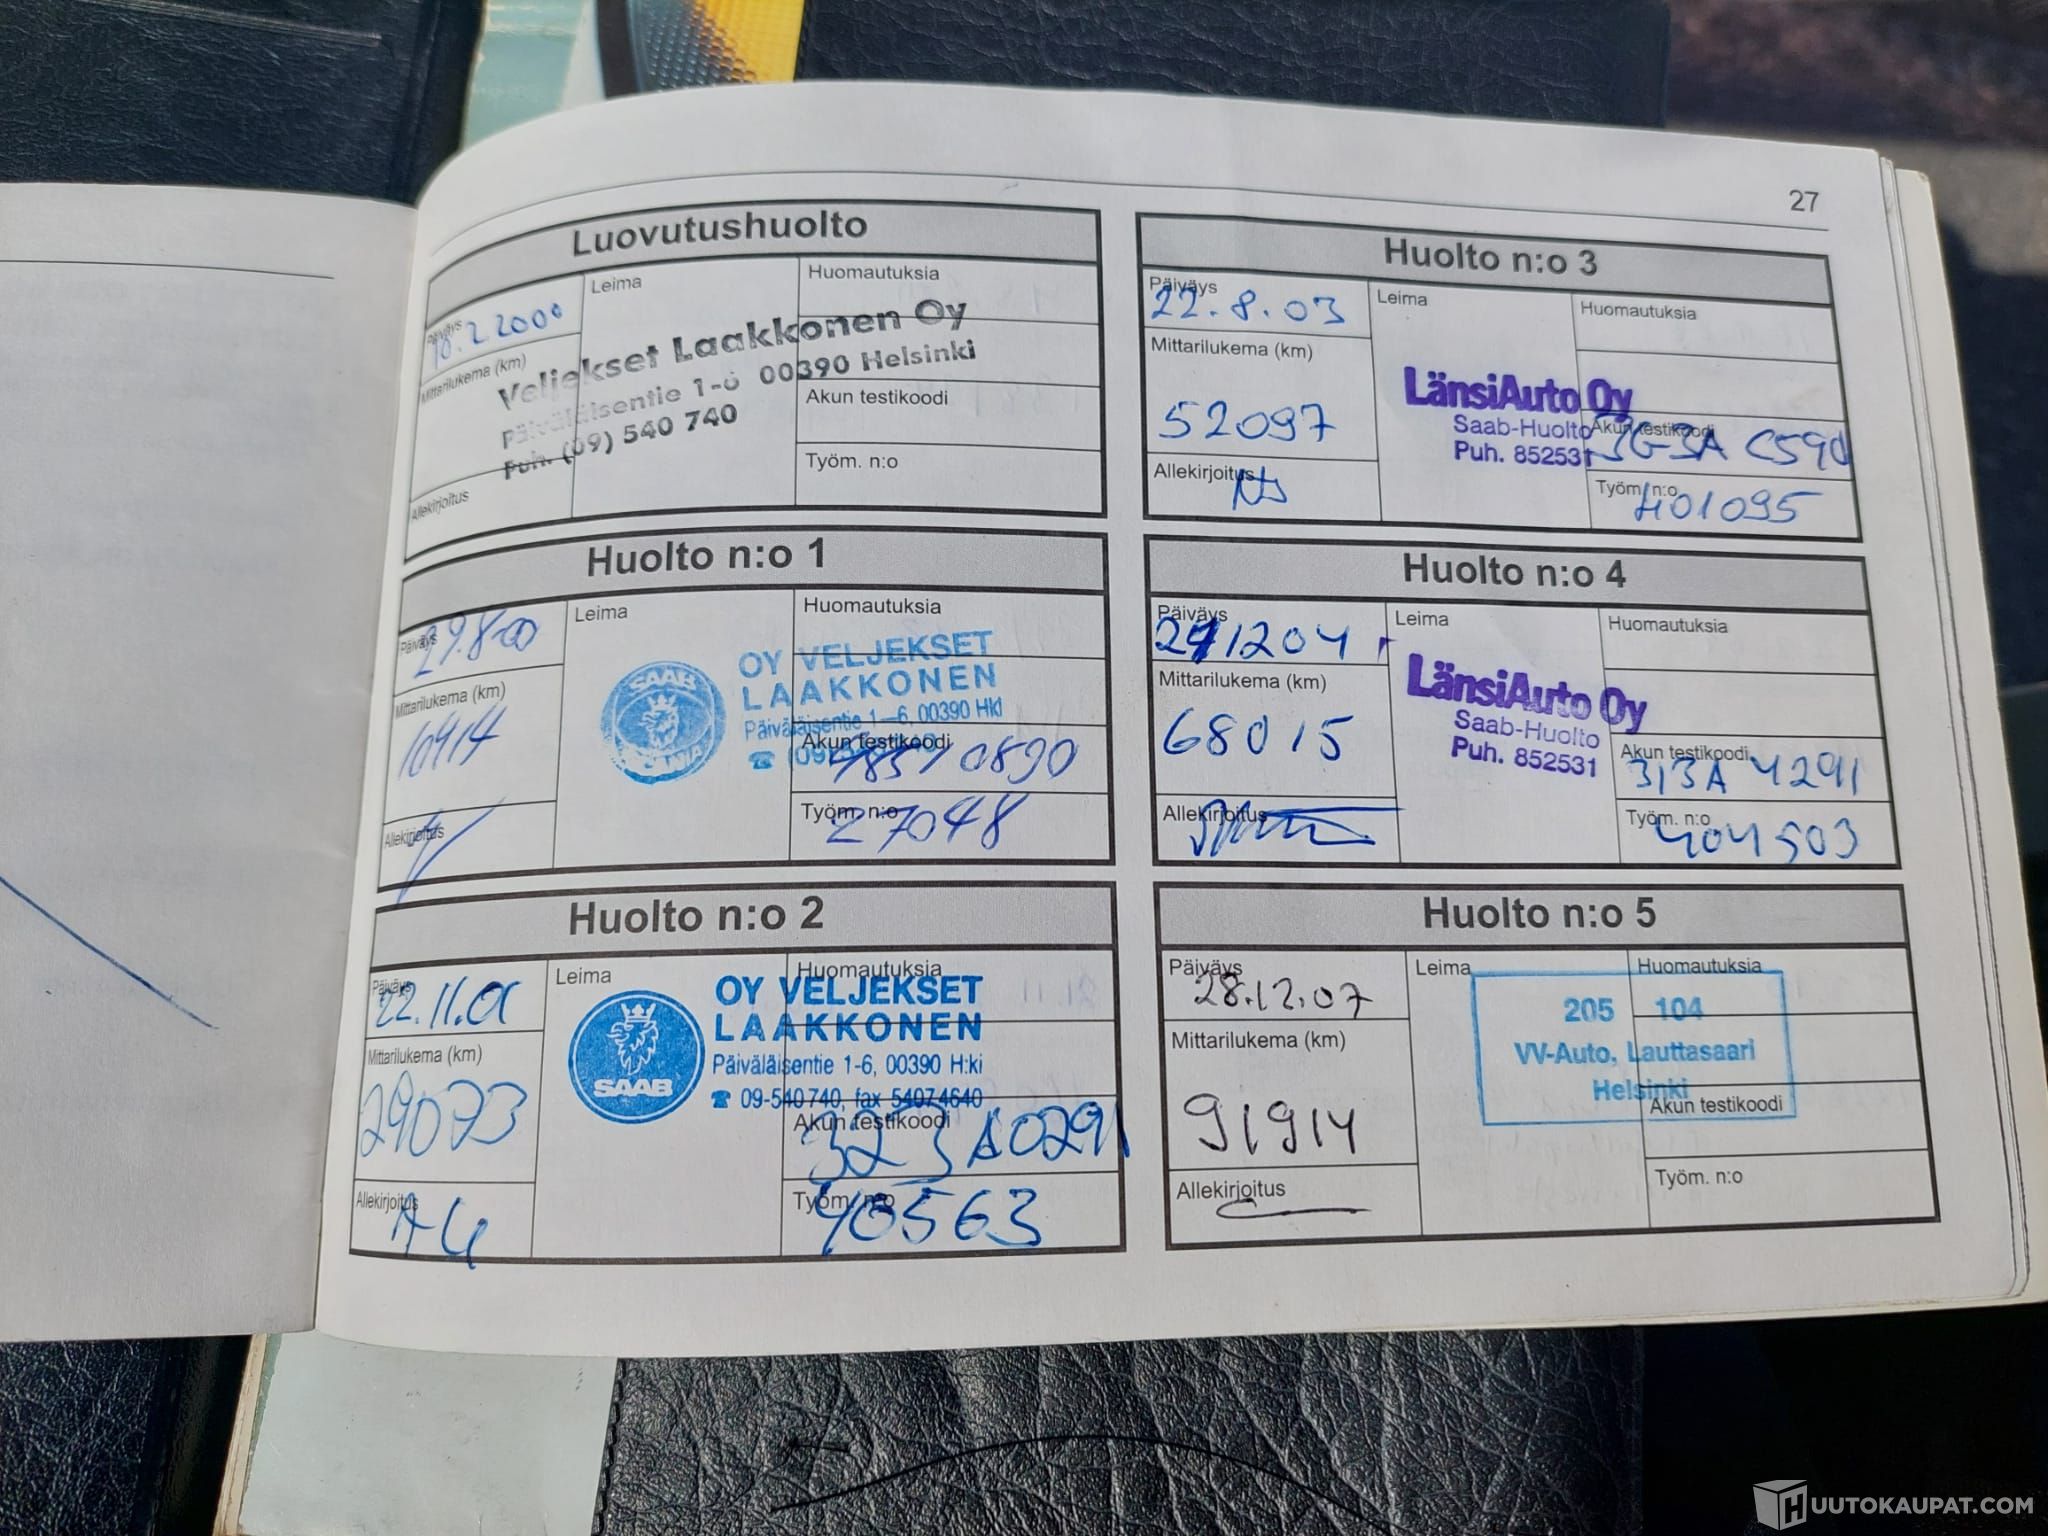 27
Luovutushuolto
Päiväys
18.2.2000
Leima
Huomautuksia
Mittarilukema (km)
Veljekset Laakkonen Oy
Päiväläisentie 1-6 00390 Helsinki
Puh. (09) 540 740
Akun testikoodi
Työm. n:o
Allekirjoitus
Huolto n:o 1
Päiväys
29.8-00
Leima
Huomautuksia
Mittarilukema (km)
10914
SAAB
OY VELJEKSET
LAAKKONEN
Päiväläisentie 1-6, 00390 Hki
Akun testikoodi
Työm. n:o
27048
Allekirjoitus
Huolto n:o 2
Päiväys
22.11.01
Leima
Huomautuksia
Mittarilukema (km)
29073
SAAB
OY VELJEKSET
LAAKKONEN
Päiväläisentie 1-6, 00390 H:ki
☎ 09-540740, fax 54074640
Akun testikoodi
323A0291
Työm. n:o
40563
Allekirjoitus
Huolto n:o 3
Päiväys
22.8.03
Leima
Huomautuksia
Mittarilukema (km)
52097
LänsiAuto Oy
Saab-Huolto
Puh. 852531
Akun testikoodi
Työm. n:o
401095
Allekirjoitus
Huolto n:o 4
Päiväys
Leima
Huomautuksia
Mittarilukema (km)
68015
LänsiAuto Oy
Saab-Huolto
Puh. 852531
Akun testikoodi
313A 4291
Työm. n:o
404503
Allekirjoitus
Huolto n:o 5
Päiväys
28.12.07
Leima
Huomautuksia
Mittarilukema (km)
91914
205 104
VV-Auto, Lauttasaari
Helsinki
Akun testikoodi
Työm. n:o
Allekirjoitus
HUUTOKAUPAT.COM